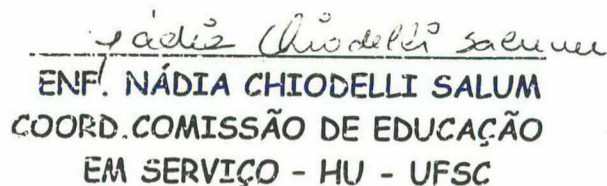 Nádia Chiodelli Salum
ENF. NÁDIA CHIODELLI SALUM
COORD.COMISSÃO DE EDUCAÇÃO
EM SERVIÇO - HU - UFSC